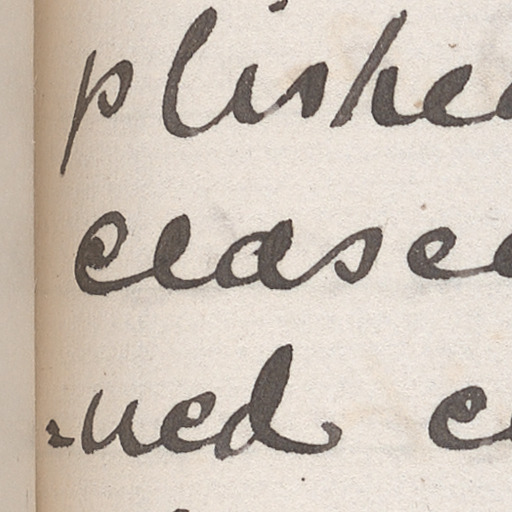 plished
ceased
=ned e